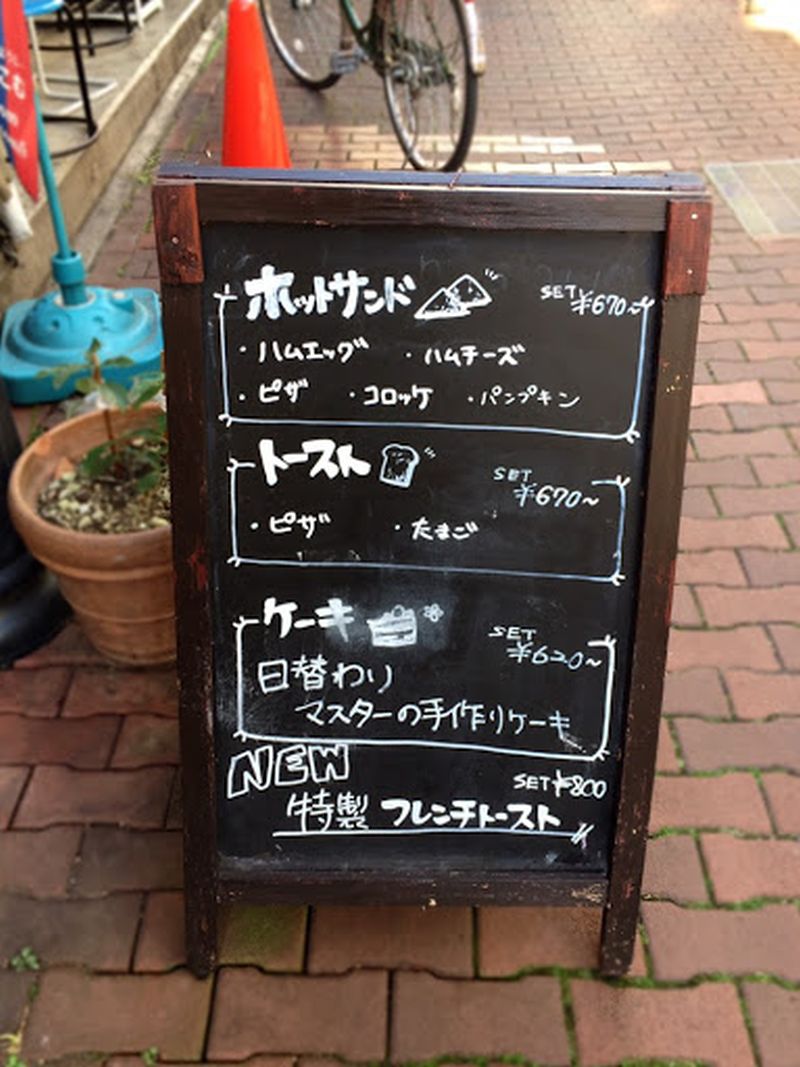 ホットサンド SET ¥670~
・ハムエッグ ・ハムチーズ
・ピザ ・コロッケ ・パンプキン
トースト SET ¥670~
・ピザ ・たまご
ケーキ SET ¥620~
日替わり
マスターの手作りケーキ
NEW SET ¥800
特製 フレンチトースト